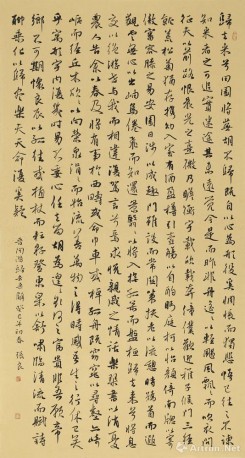 歸去來兮田園將蕪胡不歸既自以心為形役奚惆悵而獨悲悟已往之不諫
知來者之可追實迷途其未遠覺今是而昨非舟遙遙以輕颺風飄飄而吹衣問
征夫以前路恨晨光之熹微乃瞻衡宇載欣載奔僮僕歡迎稚子候門三徑
就荒松菊猶存攜幼入室有酒盈樽引壺觴以自酌眄庭柯以怡顏倚南窗以寄
傲審容膝之易安園日涉以成趣門雖設而常關策扶老以流憩時矯首而遐
觀雲無心以出岫鳥倦飛而知還景翳翳以將入撫孤松而盤桓歸去來兮請息
交以絕游世與我而相違復駕言兮焉求悅親戚之情話樂琴書以消憂
農人告余以春及將有事於西疇或命巾車或棹孤舟既窈窕以尋壑亦崎
嶇而經丘木欣欣以向榮泉涓涓而始流善萬物之得時感吾生之行休已矣
乎寓形宇內復幾時曷不委心任去留胡為乎遑遑欲何之富貴非吾願帝
鄉不可期懷良辰以孤往或植杖而耘耔登東皋以舒嘯臨清流而賦詩
聊乘化以歸盡樂夫天命復奚疑 晉陶淵明歸去來兮辭 癸巳年初春 張良
Artron.Net